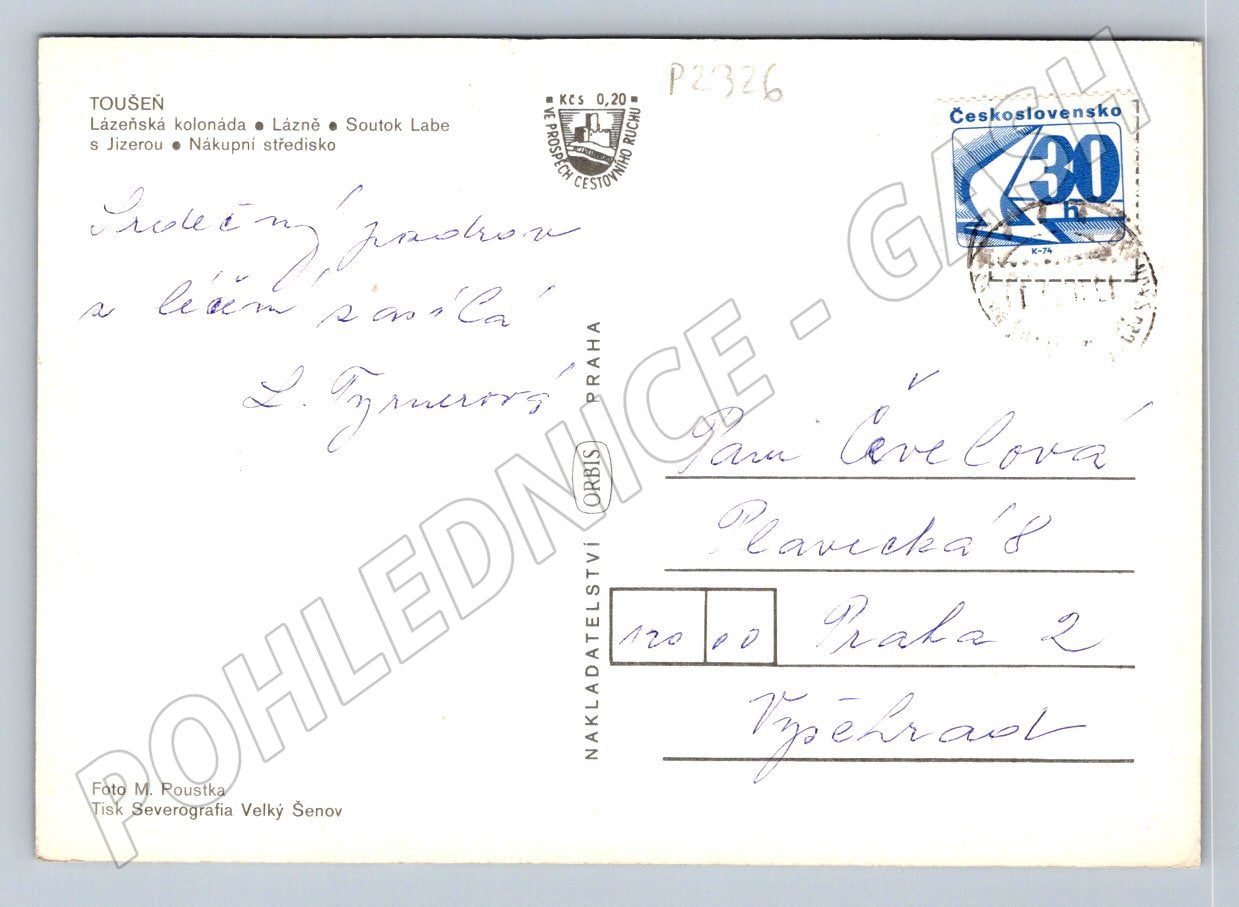 TOUŠEŇ
Lázeňská kolonáda • Lázně • Soutok Labe
s Jizerou • Nákupní středisko
Kčs 0,20
VE PROSPĚCH CESTOVNÍHO RUCHU
P2326
Československo
30
h
K-74
Srdečný pozdrav
z léčení zasílá
L. Tyrnerová
NAKLADATELSTVÍ ORBIS PRAHA
Paní Čevelová
Plavecká 8
120 00 Praha 2
Vyšehrad
Foto M. Poustka
Tisk Severografia Velký Šenov
POHLEDNICE - GASH